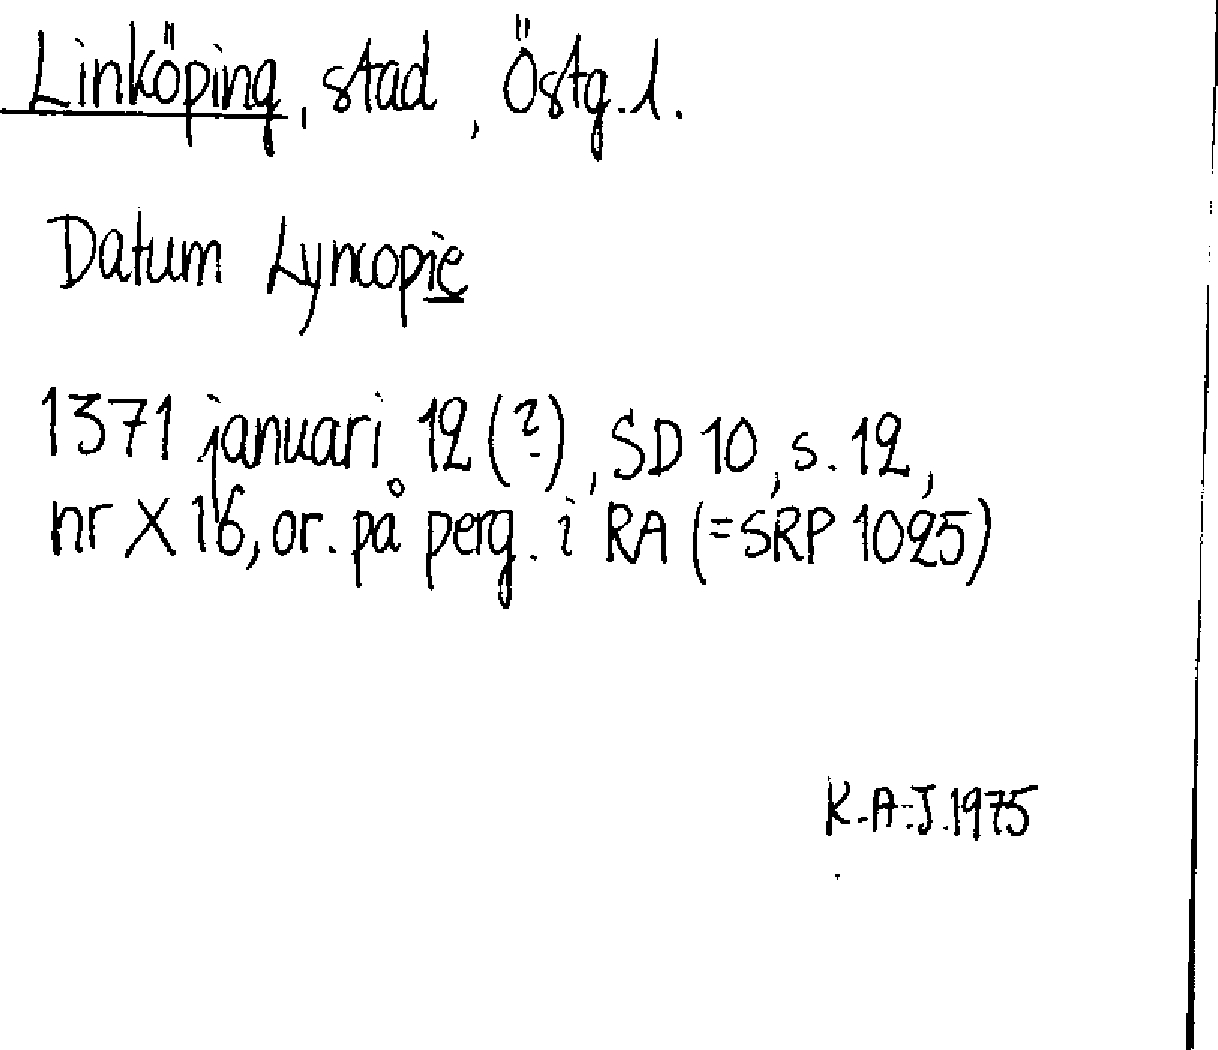 Linköping, stad, Östg.l.
Datum Lyncopie
1371 januari 12 (?), SD 10, s. 12,
nr X 16, or. på perg. i RA (=SRP 1025)
K.-A.J. 1975